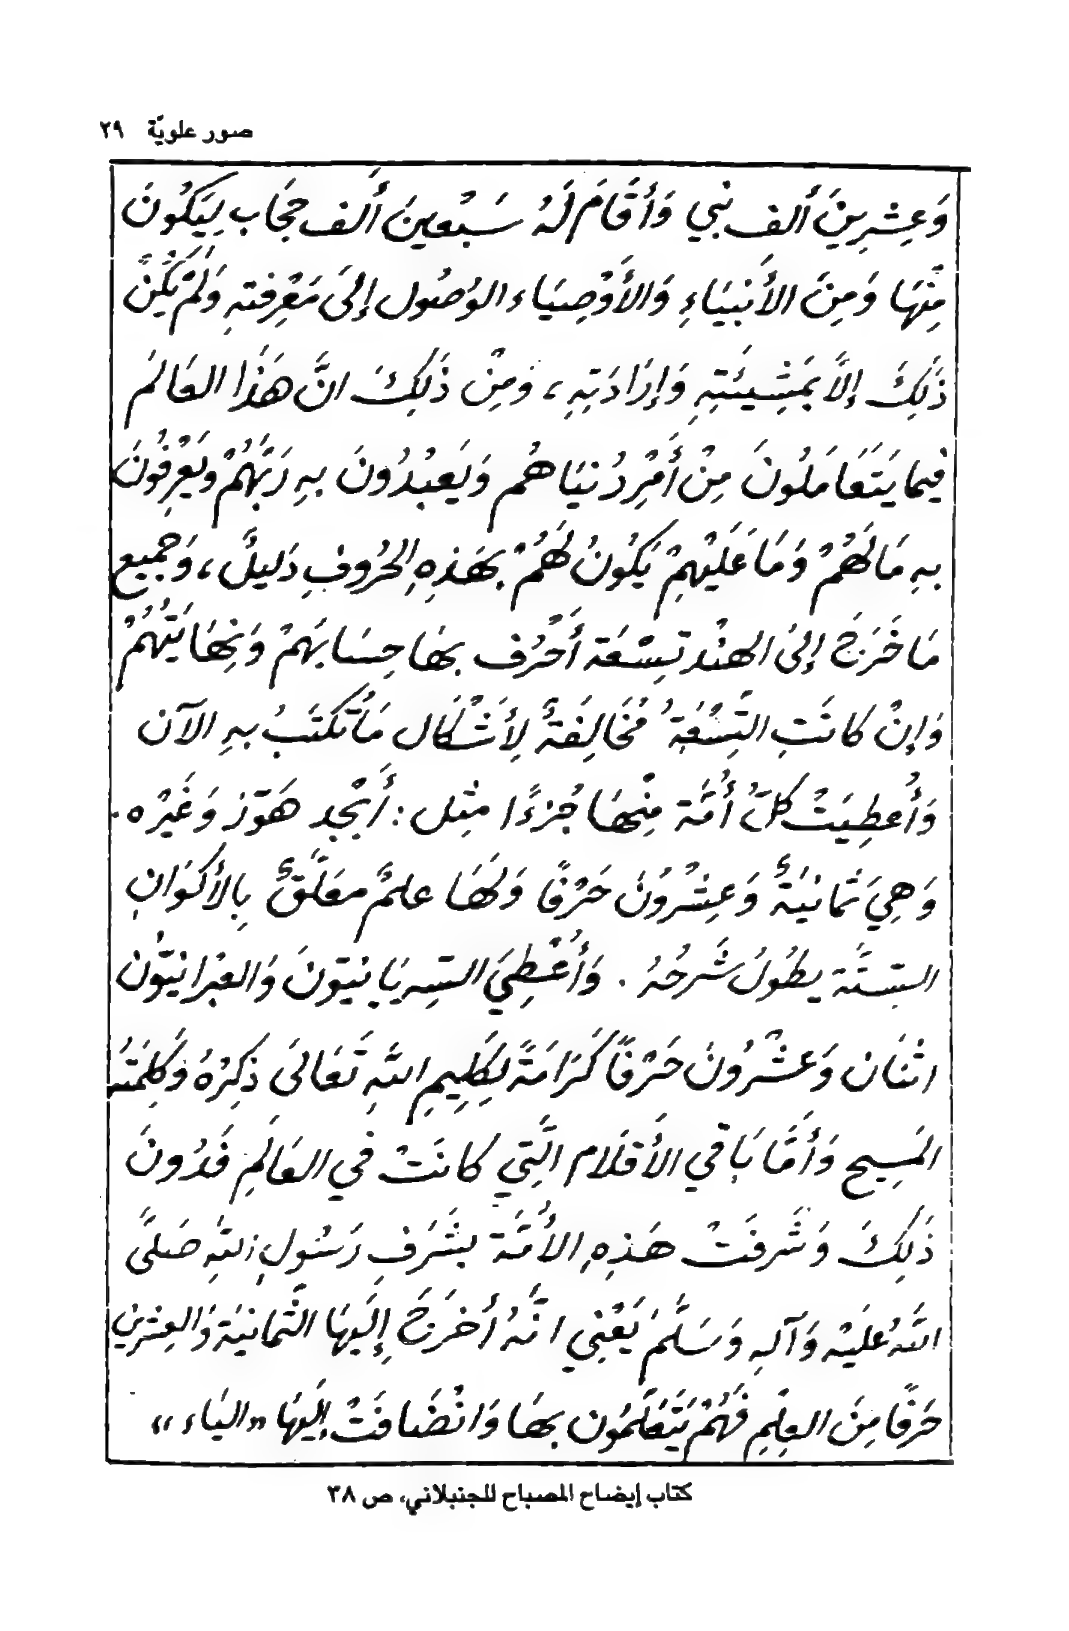 صور علويّة ٢٩
وَعِشْرِينَ أَلف نَبي وَأَقَامَ لَهُ سَبْعِينَ أَلف حِجَاب لِيَكُونَ
مِنْهَا وَمِنَ الأَنْبِيَاءِ وَالأَوْصِيَاء الوُصُول إِلَى مَعْرِفَتِهِ وَلَمْ يَكُنْ
ذَلِكَ إِلاَّ بِمَشِيئَتِهِ وَإِرَادَتِهِ، وَمِنْ ذَلِكَ انَّ هَذَا العَالَمَ
فِيمَا يَتَعَامَلُونَ مِنْ أَمْرِ دُنيَاهُم وَيَعبُدُونَ بِهِ رَبَّهُمْ وَيَعْرِفُونَ
بِهِ مَا لَهُمْ وَمَا عَلَيْهِمْ يَكُونُ لَهُمْ بِهَذِهِ الحُرُوفِ دَلِيلٌ، وَجَمِيع
مَا خَرَجَ إِلىَ الهِنْد تِسْعَة أَحْرُف بِهَا حِسَابَهمْ وَنِهَايَتُهُمْ
وَإِنْ كَانَتِ التِّسْعَةُ مُخَالِفَةً لِأَشْكَال مَا تُكتَبُ بِهِ الآن
وَأُعطِيَتْ كلّ أُمَّة مِنْهَا جُزءًا مِثِل: أَبْجَد هَوَّز وَغَيْره.
وَهِيَ ثَمَانِيَةٌ وَعِشْرُونَ حَرْفًا وَلَهَا عِلمٌ مَعَلَّقٌ بِالأَكْوَانِ
السِّتَّة يطُولُ شَرحُهُ. وَأُعْطِيَ السِّريَانِيّونَ وَالعبْرانيّون
اثْنَان وَعشْرُونَ حَرْفاً كَرَامَةً لِكَلِيمِ اللهِ تَعَالَى ذِكرُهُ وَكَلِمَتهُ
المَسِيح وَأَمَّا بَاقي الأَقلَام الَّتِي كَانَتْ فِي العَالَمِ فَدُونَ
ذَلِكَ وَشَرفَتْ هَذِهِ الأُمَّة بِشَرَفِ رَسُولِ اللهِ صَلَّى
اللهُ عَلَيْهِ وَآلِهِ وَسَلَّمَ يَعْني انَّهُ أَخرَجَ إِلَيهَا الثَّمانيَة وَالعِشرين
حَرفًا مِنَ العِلمِ فَهُمْ يَتَعَلَّمُون بِهَا وَانْضَافَتْ إِلَيهَا «اليَاء»
كتاب إيضاح المصباح للجنبلاني، ص ٣٨